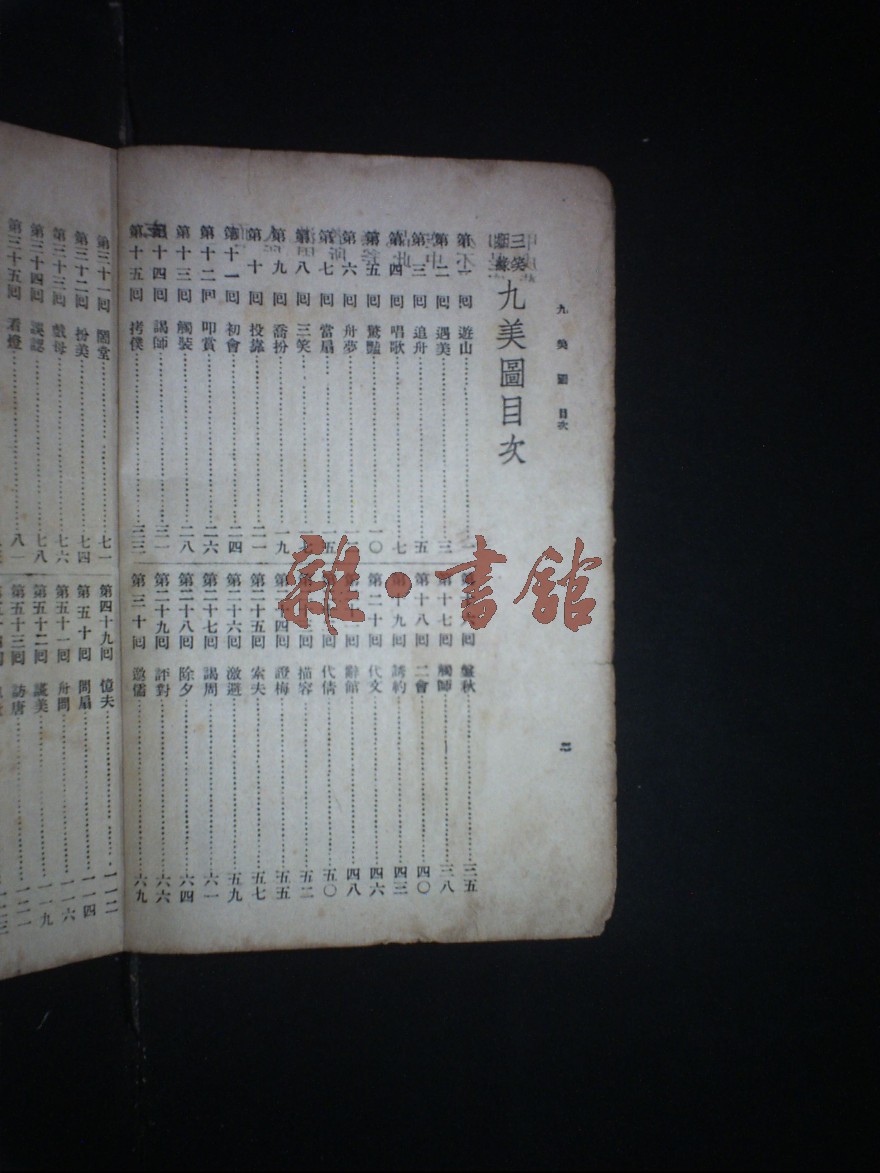 九美圖 目次
三笑
九美圖目次
第一回 遊山 一
第二回 遇美 三
第三回 追舟 五
第四回 唱歌 七
第五回 驚豔 一〇
第六回 舟夢
第七回 當扇 一五
第八回 三笑 一七
第九回 喬扮 一九
第十回 投靠 二一
第十一回 初會 二四
第十二回 叩賞 二六
第十三回 觸裝 二八
第十四回 謁師 三一
第十五回 拷僕 三三
盤秋 三五
第十七回 觸師 三八
第十八回 二會 四〇
第十九回 誘約 四三
第二十回 代文 四六
辭館 四八
代倩 五〇
描容 五二
證梅 五五
第二十五回 索夫 五七
第二十六回 激遁 五九
第二十七回 謁周 六一
第二十八回 除夕 六四
第二十九回 評對 六六
第三十回 邀儒 六九
第三十一回 鬧堂 七一
第三十二回 扮美 七四
第三十三回 戲母 七六
第三十四回 誤認 七八
第三十五回 看燈 八一
第四十九回 憶夫 一一二
第五十回 問扇 一一四
第五十一回 舟問 一一六
第五十二回 議美 一一九
第五十三回 訪唐 一二一
雜·書館